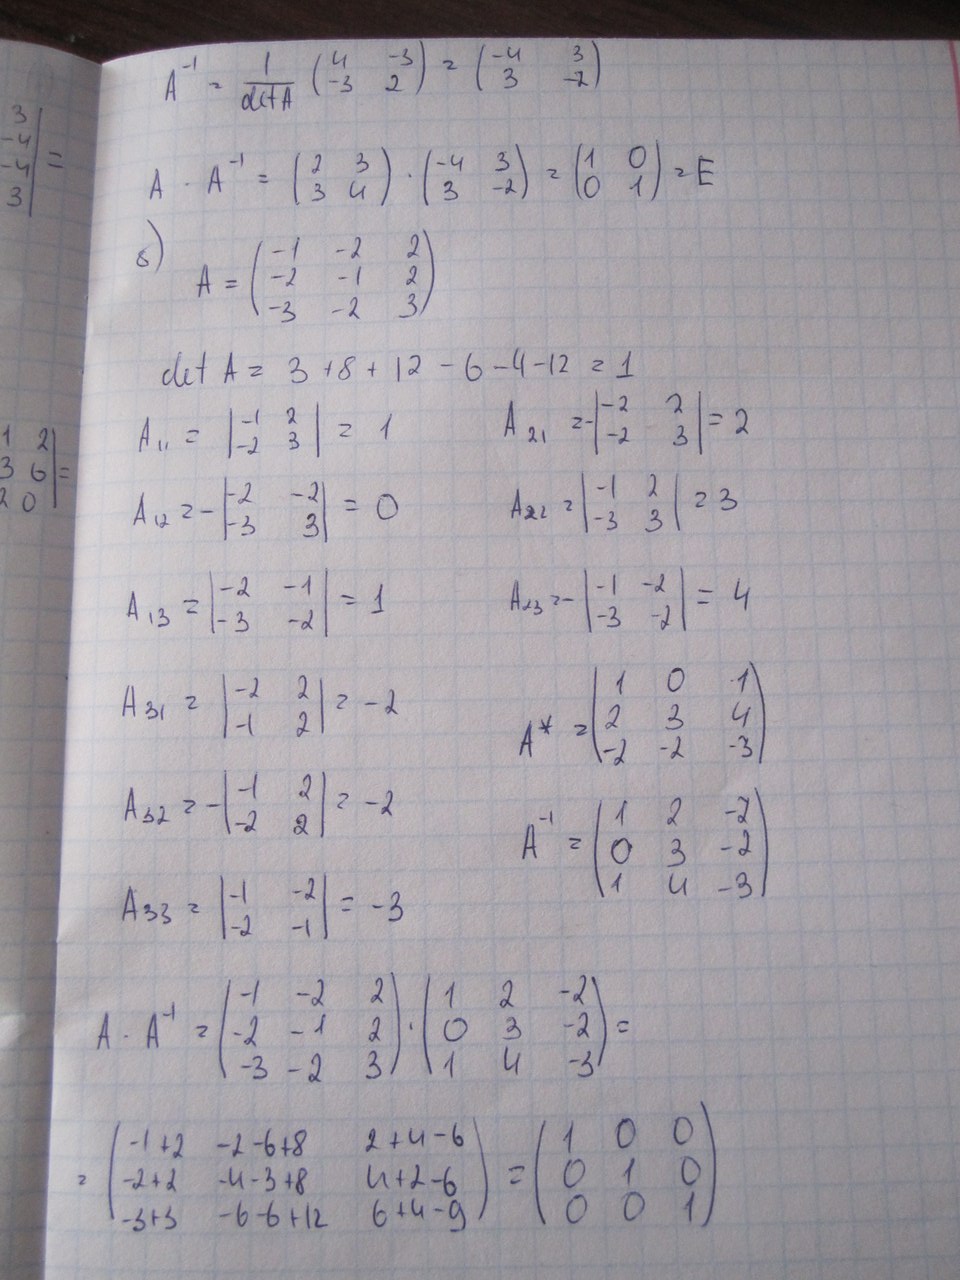 3
-4
-4 =
3
1 2
3 6 =
2 0
A^-1 = 1/det A (4 -3; -3 2) = (-4 3; 3 -2)
A · A^-1 = (2 3; 3 4) · (-4 3; 3 -2) = (1 0; 0 1) = E
б)
A = (-1 -2 2; -2 -1 2; -3 -2 3)
det A = 3 + 8 + 12 - 6 - 4 - 12 = 1
A11 = |-1 2; -2 3| = 1 A21 = -|-2 2; -2 3| = 2
A12 = -|-2 -2; -3 3| = 0 A22 = |-1 2; -3 3| = 3
A13 = |-2 -1; -3 -2| = 1 A23 = -|-1 -2; -3 -2| = 4
A31 = |-2 2; -1 2| = -2 A* = (1 0 1; 2 3 4; -2 -2 -3)
A32 = -|-1 2; -2 2| = -2 A^-1 = (1 2 -2; 0 3 -2; 1 4 -3)
A33 = |-1 -2; -2 -1| = -3
A · A^-1 = (-1 -2 2; -2 -1 2; -3 -2 3) · (1 2 -2; 0 3 -2; 1 4 -3) =
= (-1+2 -2-6+8 2+4-6; -2+2 -4-3+8 4+2-6; -3+3 -6-6+12 6+4-9) = (1 0 0; 0 1 0; 0 0 1)